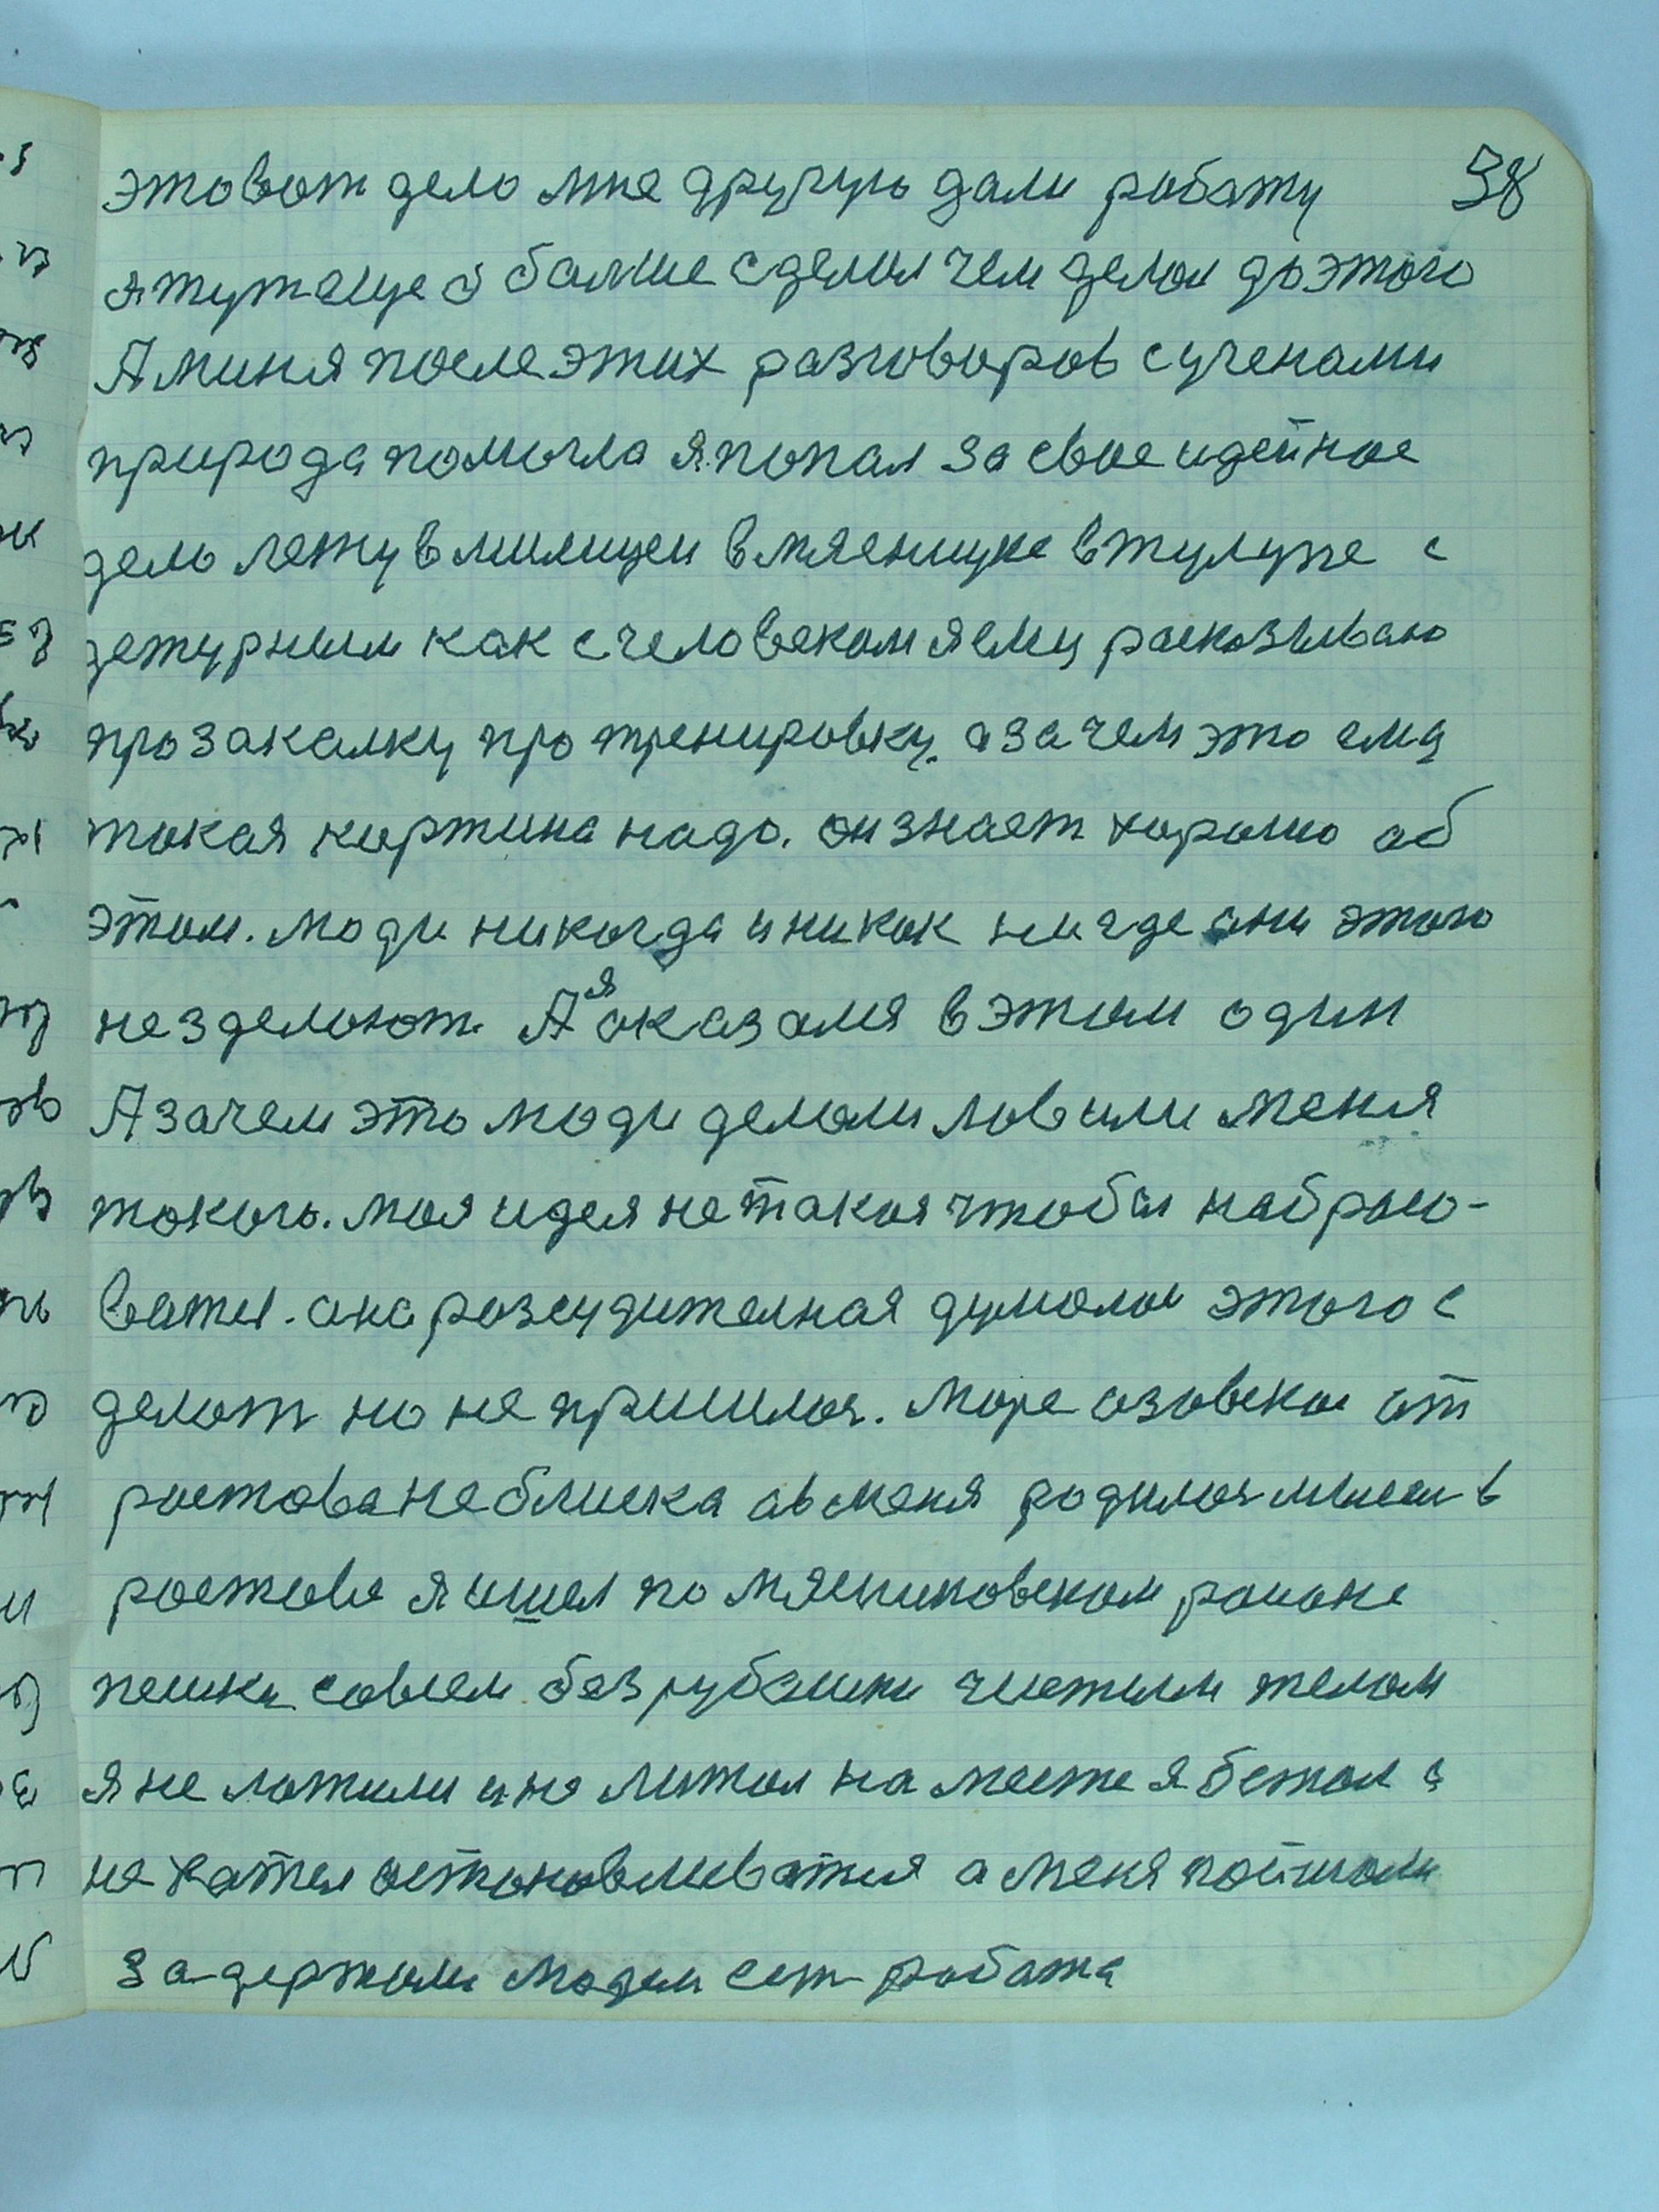 38
это вот дело мне другую дали работу
я тут еще болше сделал чем делал до этого
А миня после этих разговоров с учеными
природа помогла я попал за свое идейное
дело лежу в милицеи в мясницке в тулупе с
дежурным как с человеком я ему расказываю
про закалку про тренировку. а зачем это ему
токая картина надо. он знает хорошо об
этом. люди никогда и никак нигде они этого
не зделоют. А я оказался в этом один
А зачем это люди делоли ловили меня
токого. моя идея не такоя чтобы набрасо-
ватся. она розсудителная думалои этого с
делот но не пришлося. море азовское от
ростова неблиска а в меня родилося мысли в
ростове я ишел по мясниковском районе
пешки совсем без рубашки чистым телом
я не ложили и не лижал на месте я бежал и
не хател астоновливатся а меня поймали
задержоли людям ест работа